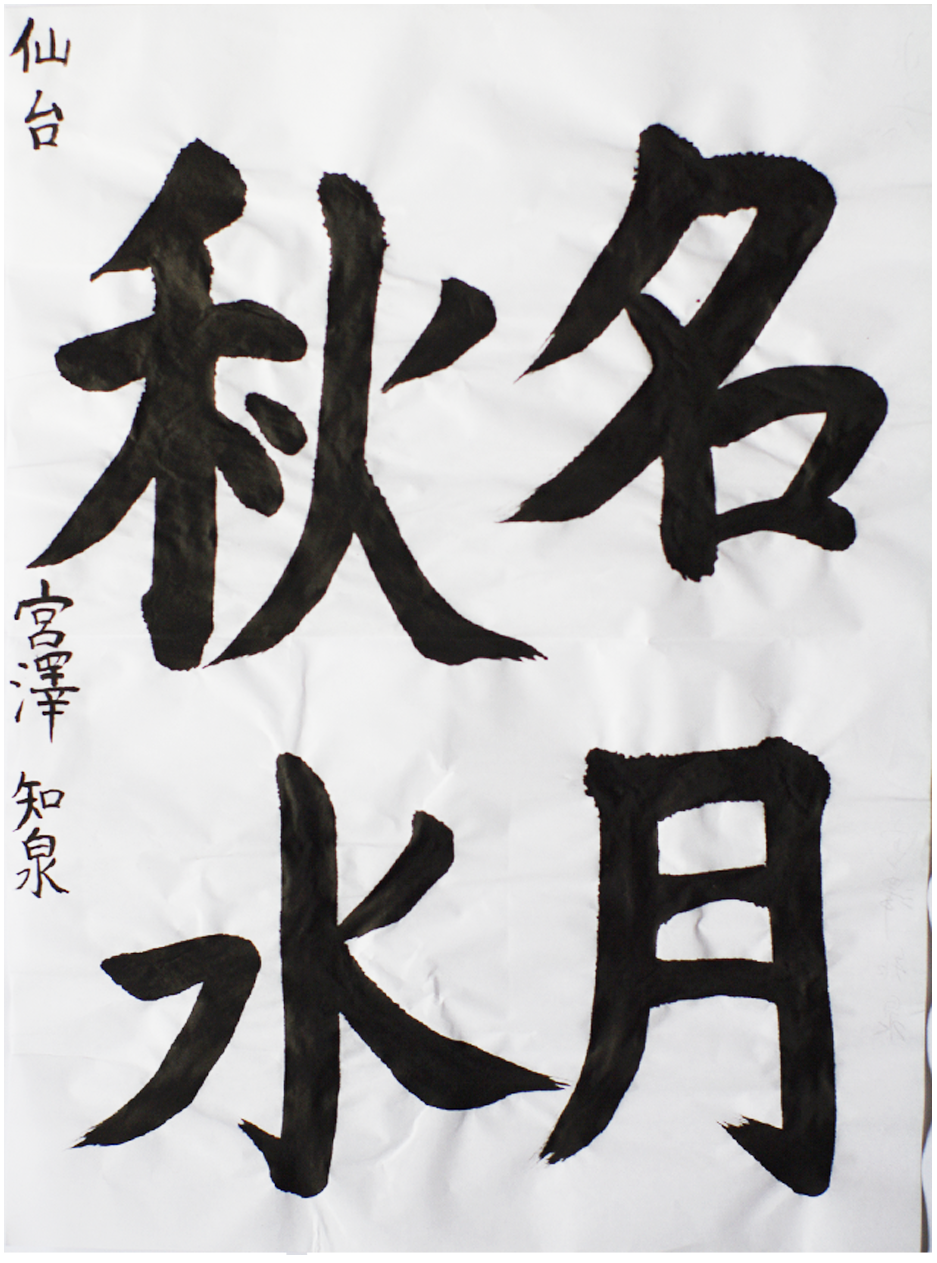 名月
秋水
仙台 宮澤 知泉